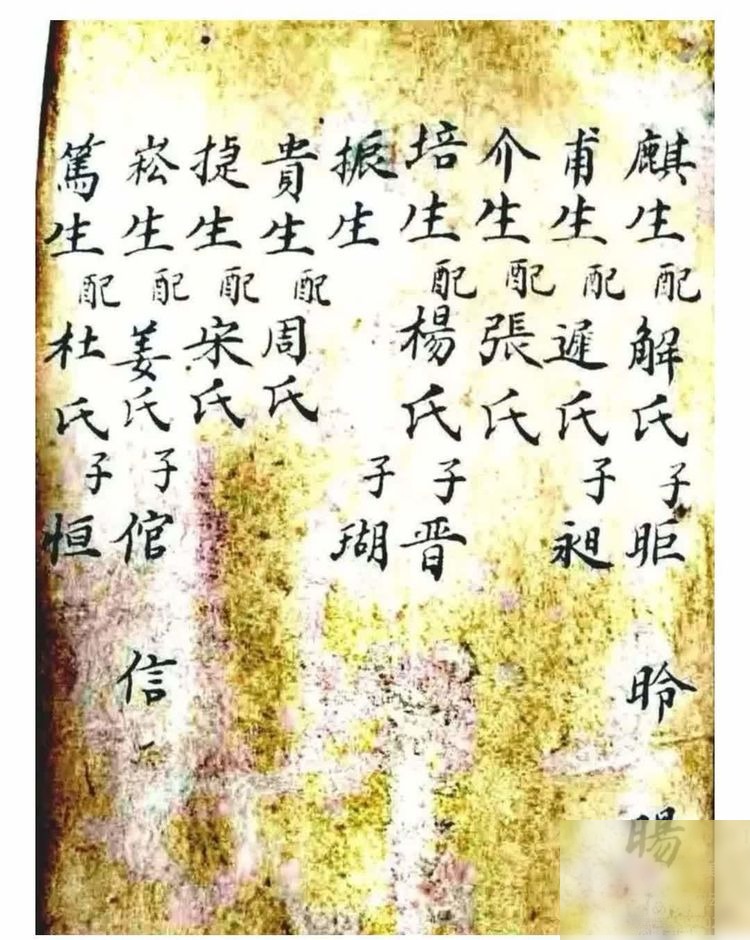 麒生配解氏子昛昤暘
甫生配遲氏子昶
介生配張氏
培生配楊氏子晋
振生子瑚
貴生配周氏
捷生配宋氏
崧生配姜氏子倌信
篤生配杜氏子恒